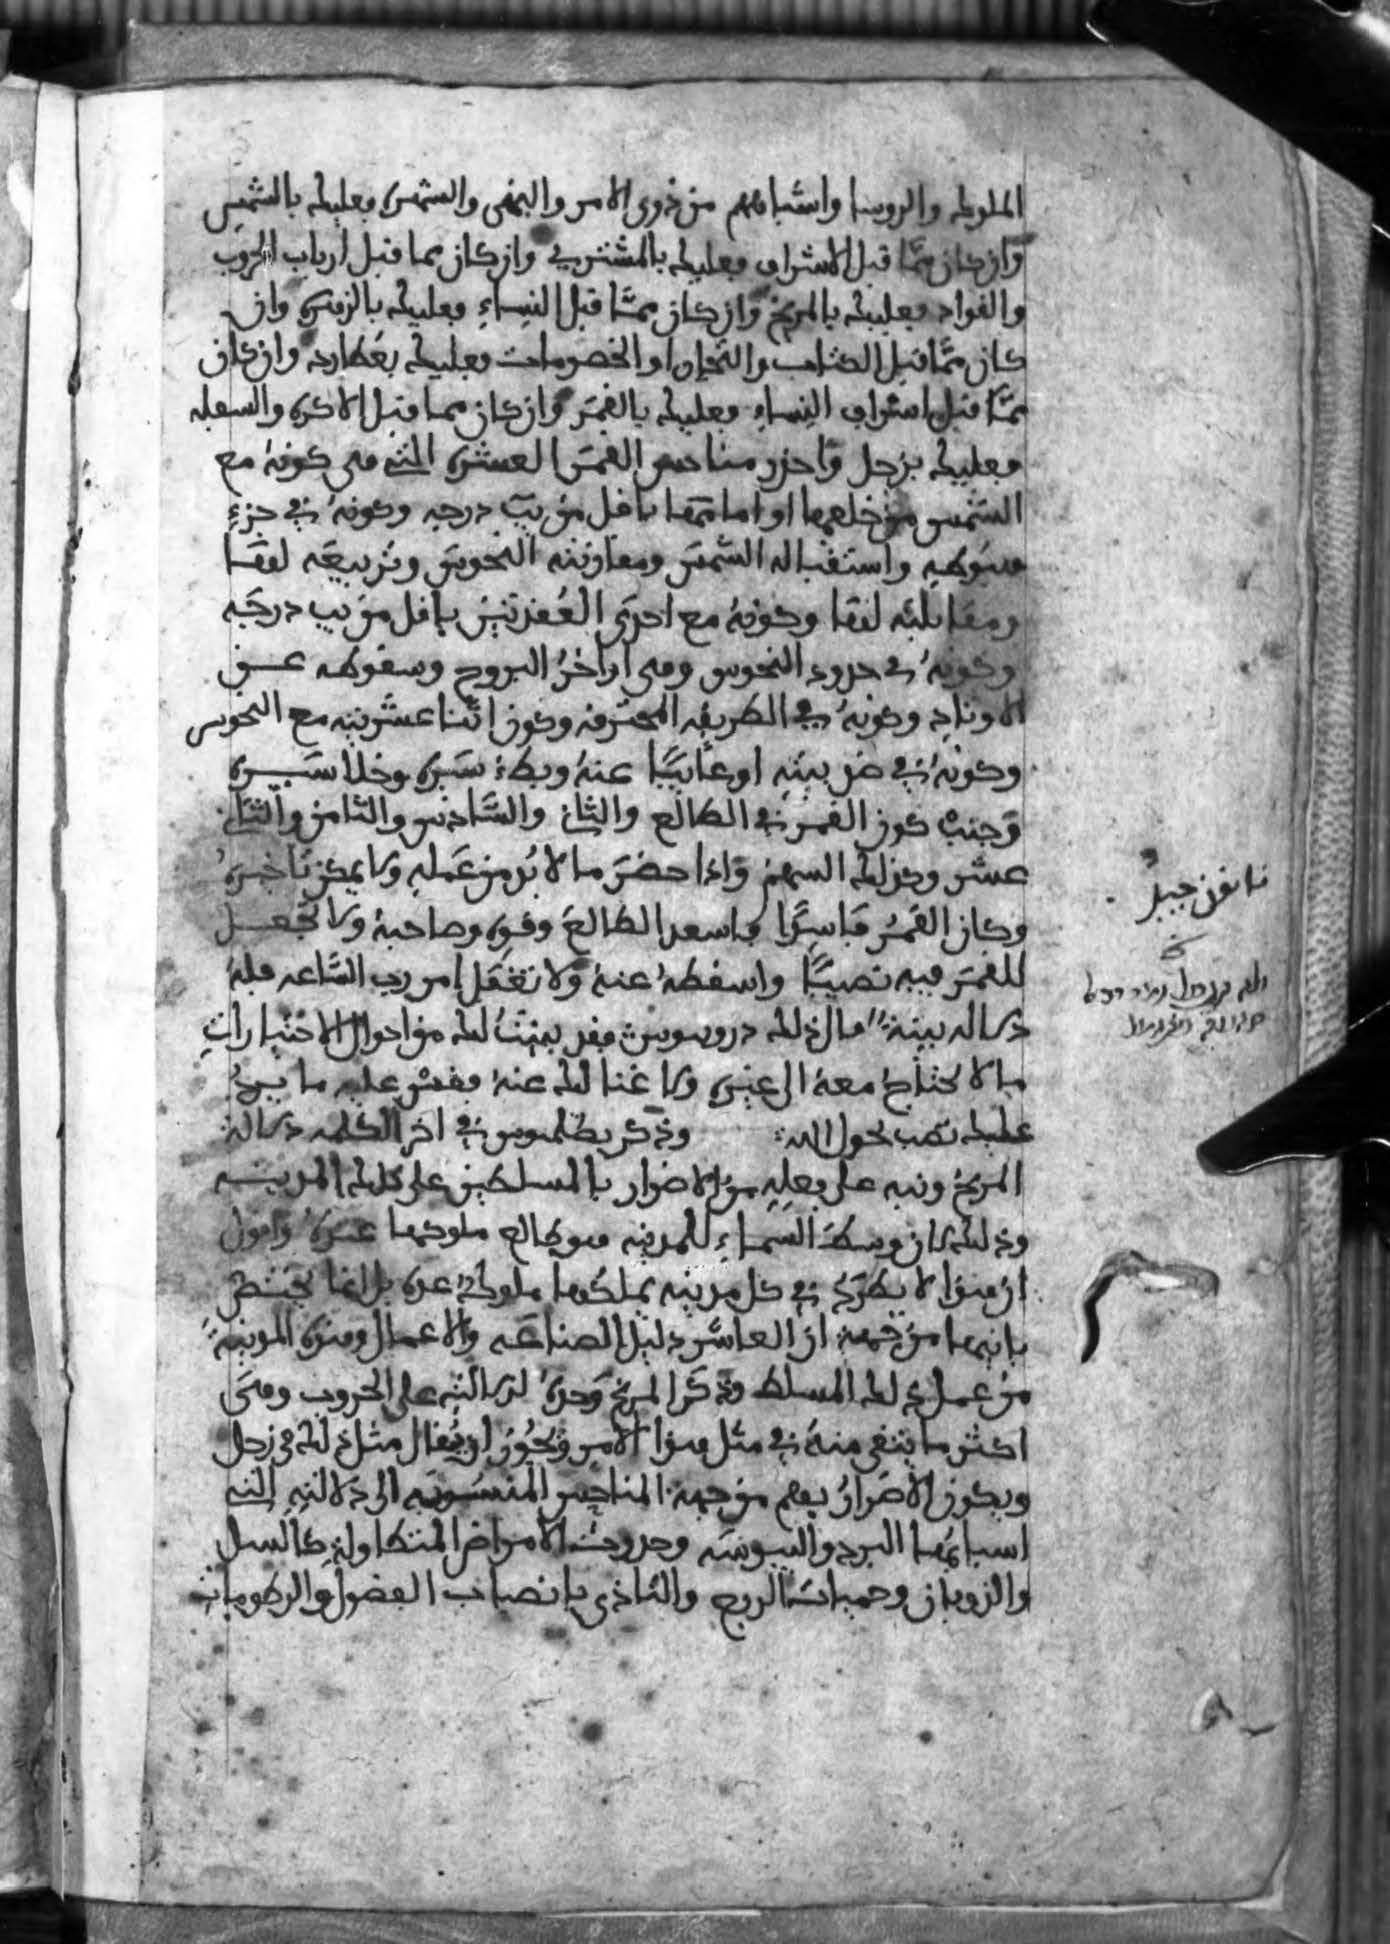 الملوك والروسا واشباههم من ذوي الامر والنهى والشمس فعليك بالشمس
وان كان مما قبل الاشراف فعليك بالمشتري وان كان مما قبل ارباب الحروب
والقواد فعليك بالمريخ وان كان مما قبل النساء فعليك بالزهرة وان
كان مما قبل الكتاب والتجار او الخصومات فعليك بعطارد وان كان
مما قبل اشراف النساء فعليك بالقمر وان كان مما قبل الاكرة والسفلة
فعليك بزحل واحذر مناحس القمر العشرة التي هى كونه مع
الشمس من خلفها او امامها باقل من يب درجه وكونه في جزء
هبوطه واستقباله الشمس ومقارنته النحوس وتربيعه لها
ومقابلته لها وكونه مع احدى العقدتين باقل من يب درجه
وكونه في حدود النحوس وهى اواخر البروج وسقوطه عن
الاوتاد وكونه في الطريقة المحترقه وكون اثنا عشريته مع النحوس
وكونه في ضد بيته او غايبا عنه وبطء سيره
وجنب كون القمر في الطالع والثاني والسادس والثامن والثاني
عشر وكذلك السهم واذا حضر ما لا بد من عمله ولا يمكن تاخيره
وكان القمر فاسدا فاسعد الطالع وقوه وصاحبه ولا تجعل
للقمر فيه نصيبا واسقطه عنه ولا تغفل امر رب الساعه فله
دلاله بينة قال ذلك دروسوس فقد بينت لك من احوال الاختيارات
ما لا تحتاج معه الى غيره ولا غنا لك عنه فقس عليه ما يرد
عليك تصب بحول الله وذكر بطلميوس في اخر الكلمه دلالة
المريخ ونبه على فعله من الاضرار بالمسلطين على تلك المدينه
وذلك لان وسط السماء للمدينه هو طالع ملوكها عنده واقول
ان هذا لا يطرد في كل مدينه يملكها ملوك عدة
من جهة ان العاشر دليل الصناعه والاعمال وهذه المدينة
من عمل ذلك المسلط وذكر المريخ وحده لدلالته على الحروب وهى
اكثر ما يتقى منه في مثل هذا الامر ويجوز ان يقال مثل ذلك في زحل
ويكون الاضرار بهم من جهة المناحس المنسوبه الى دلالته التي
اسبابها البرد واليبوسه وحدوث الامراض المتطاولة كالسل
والذوبان وحميات الربع والتاذي بانصباب الفضول والرطوبات